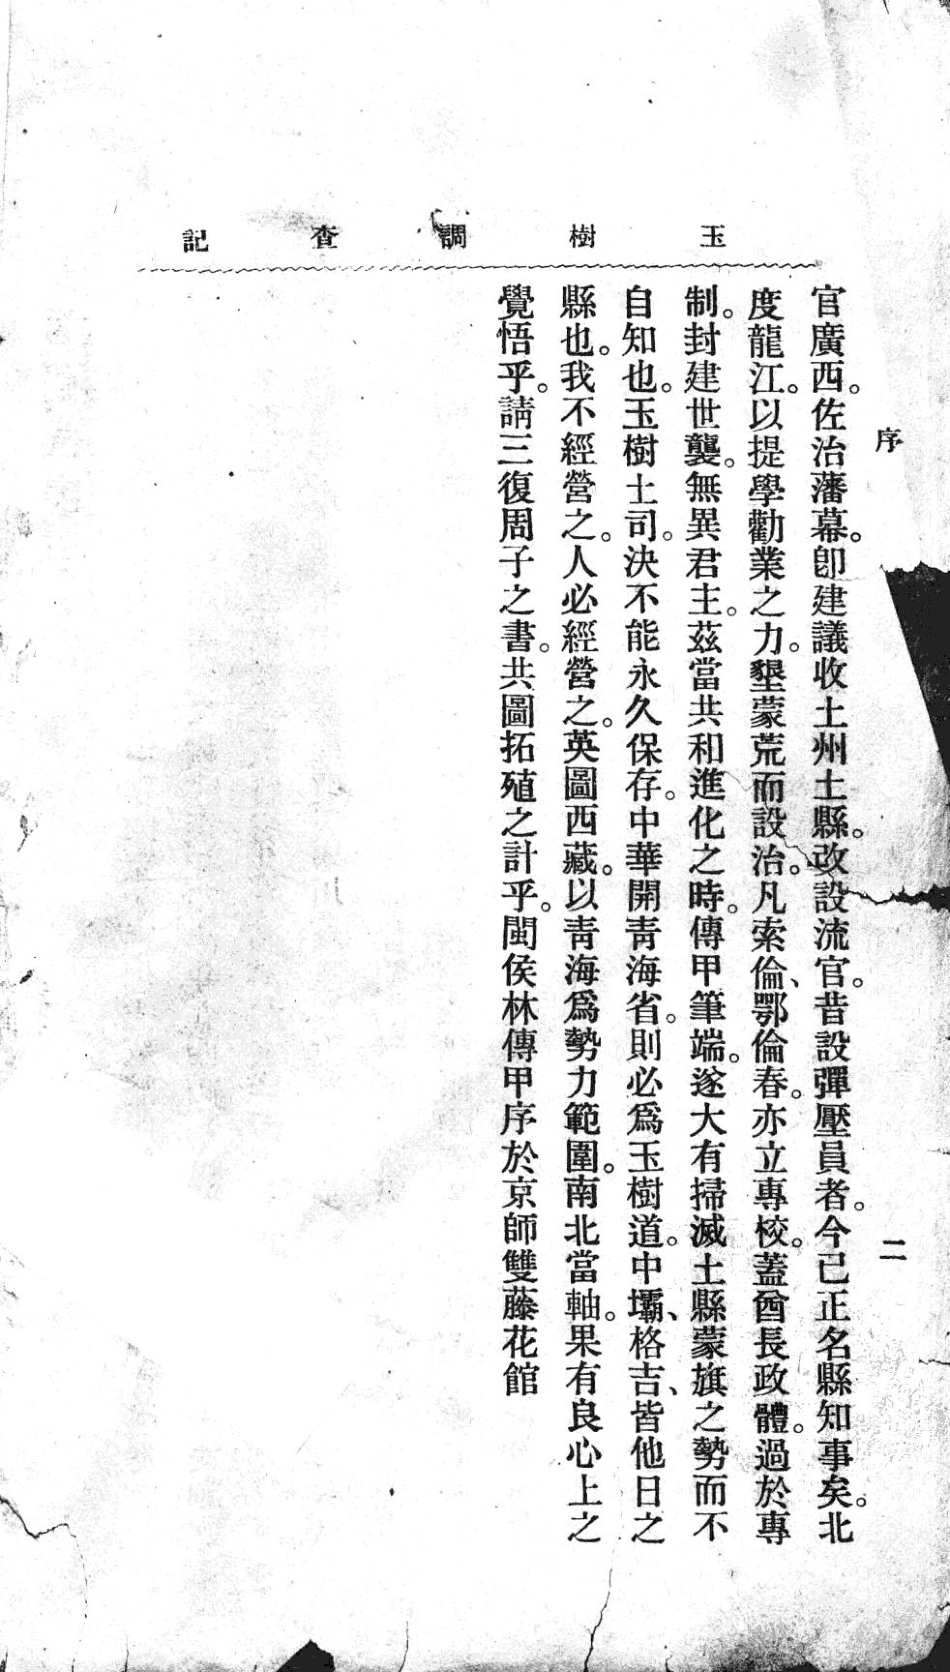 玉樹調查記
序
二
官廣西。佐治藩幕。卽建議收土州土縣。改設流官。昔設彈壓員者。今已正名縣知事矣。北
度龍江。以提學勸業之力。墾蒙荒而設治。凡索倫、鄂倫春。亦立專校。蓋酋長政體。過於專
制。封建世襲。無異君主。茲當共和進化之時。傳甲筆端。遂大有掃滅土縣蒙旗之勢而不
自知也。玉樹土司。決不能永久保存。中華開青海省。則必爲玉樹道。中壩、格吉、皆他日之
縣也。我不經營之。人必經營之。英圖西藏。以青海爲勢力範圍。南北當軸。果有良心上之
覺悟乎。請三復周子之書。共圖拓殖之計乎。閩侯林傳甲序於京師雙藤花館